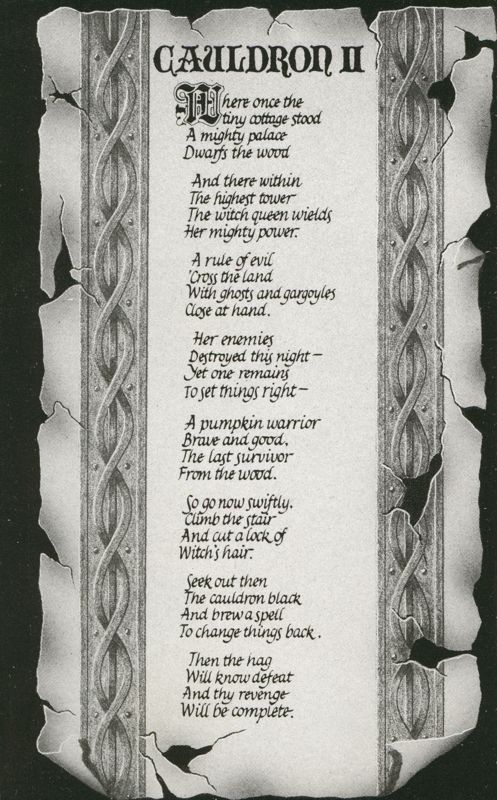 CAULDRON II
Where once the
tiny cottage stood
A mighty palace
Dwarfs the wood
And there within
The highest tower
The witch queen wields
Her mighty power.
A rule of evil
'Cross the land
With ghosts and gargoyles
Close at hand.
Her enemies
Destroyed this night—
Yet one remains
To set things right—
A pumpkin warrior
Brave and good,
The last survivor
From the wood.
So go now swiftly,
Climb the stair
And cut a lock of
Witch's hair.
Seek out then
The cauldron black
And brew a spell
To change things back.
Then the hag
Will know defeat
And thy revenge
Will be complete.